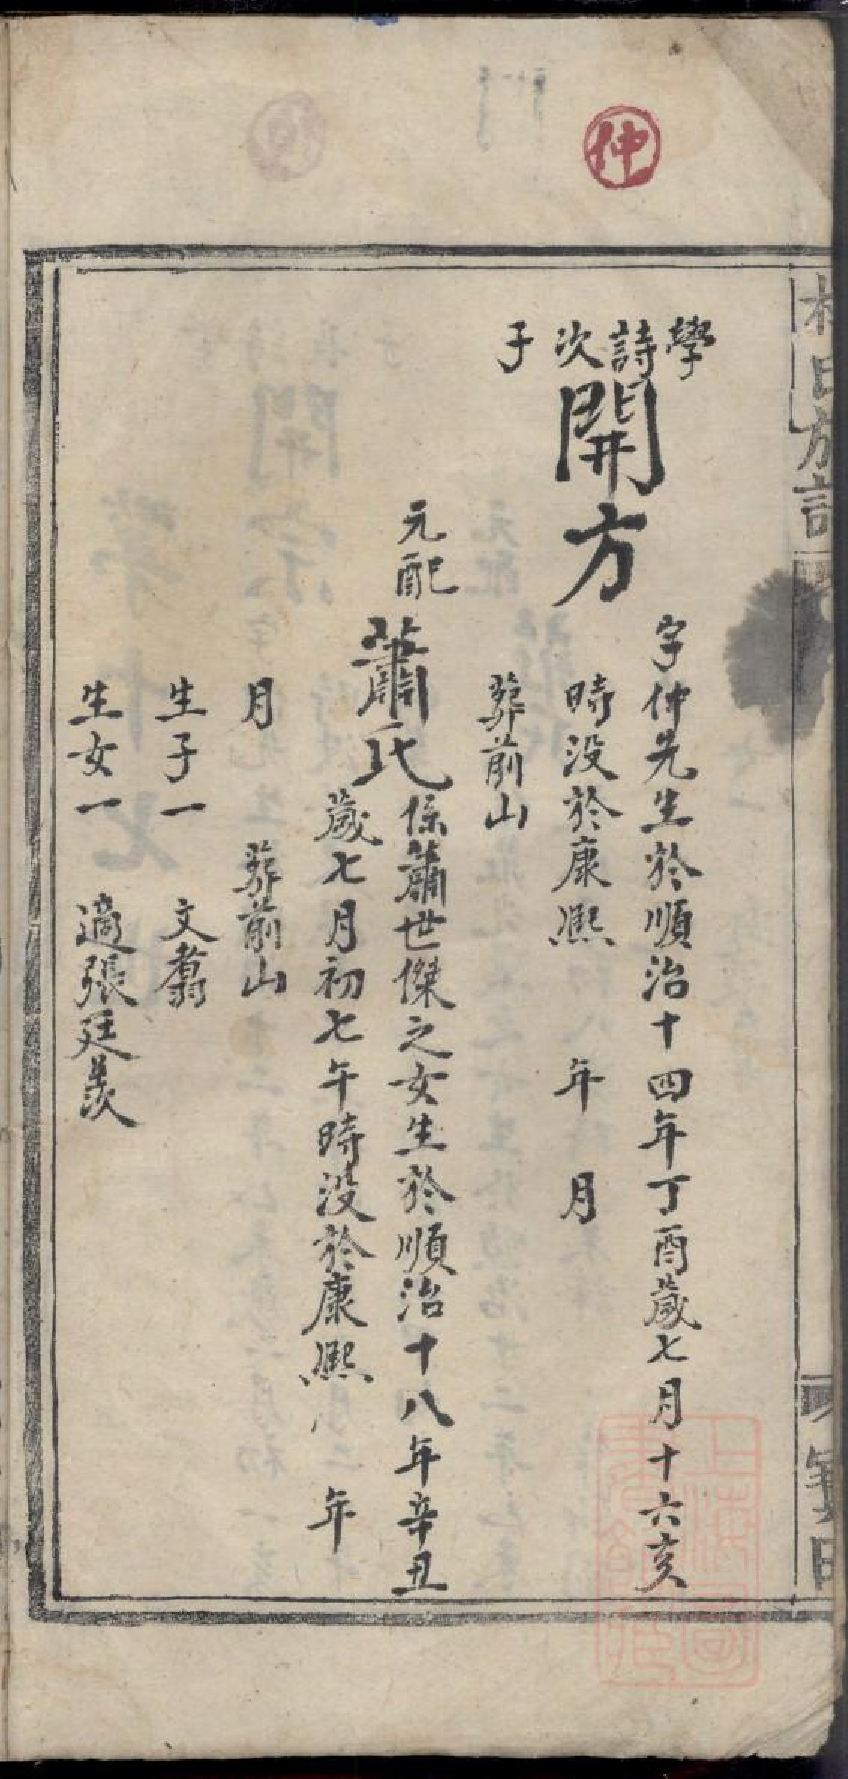 仲
學詩次子
開方
字仲先生於順治十四年丁酉歲七月十六亥
時没於康熙 年 月
葬前山
元配
蕭氏
係蕭世傑之女生於順治十八年辛丑
歲七月初七午時没於康熙 年
月 葬前山
生子一 文翥
生女一 適張廷羨
上海圖書館藏